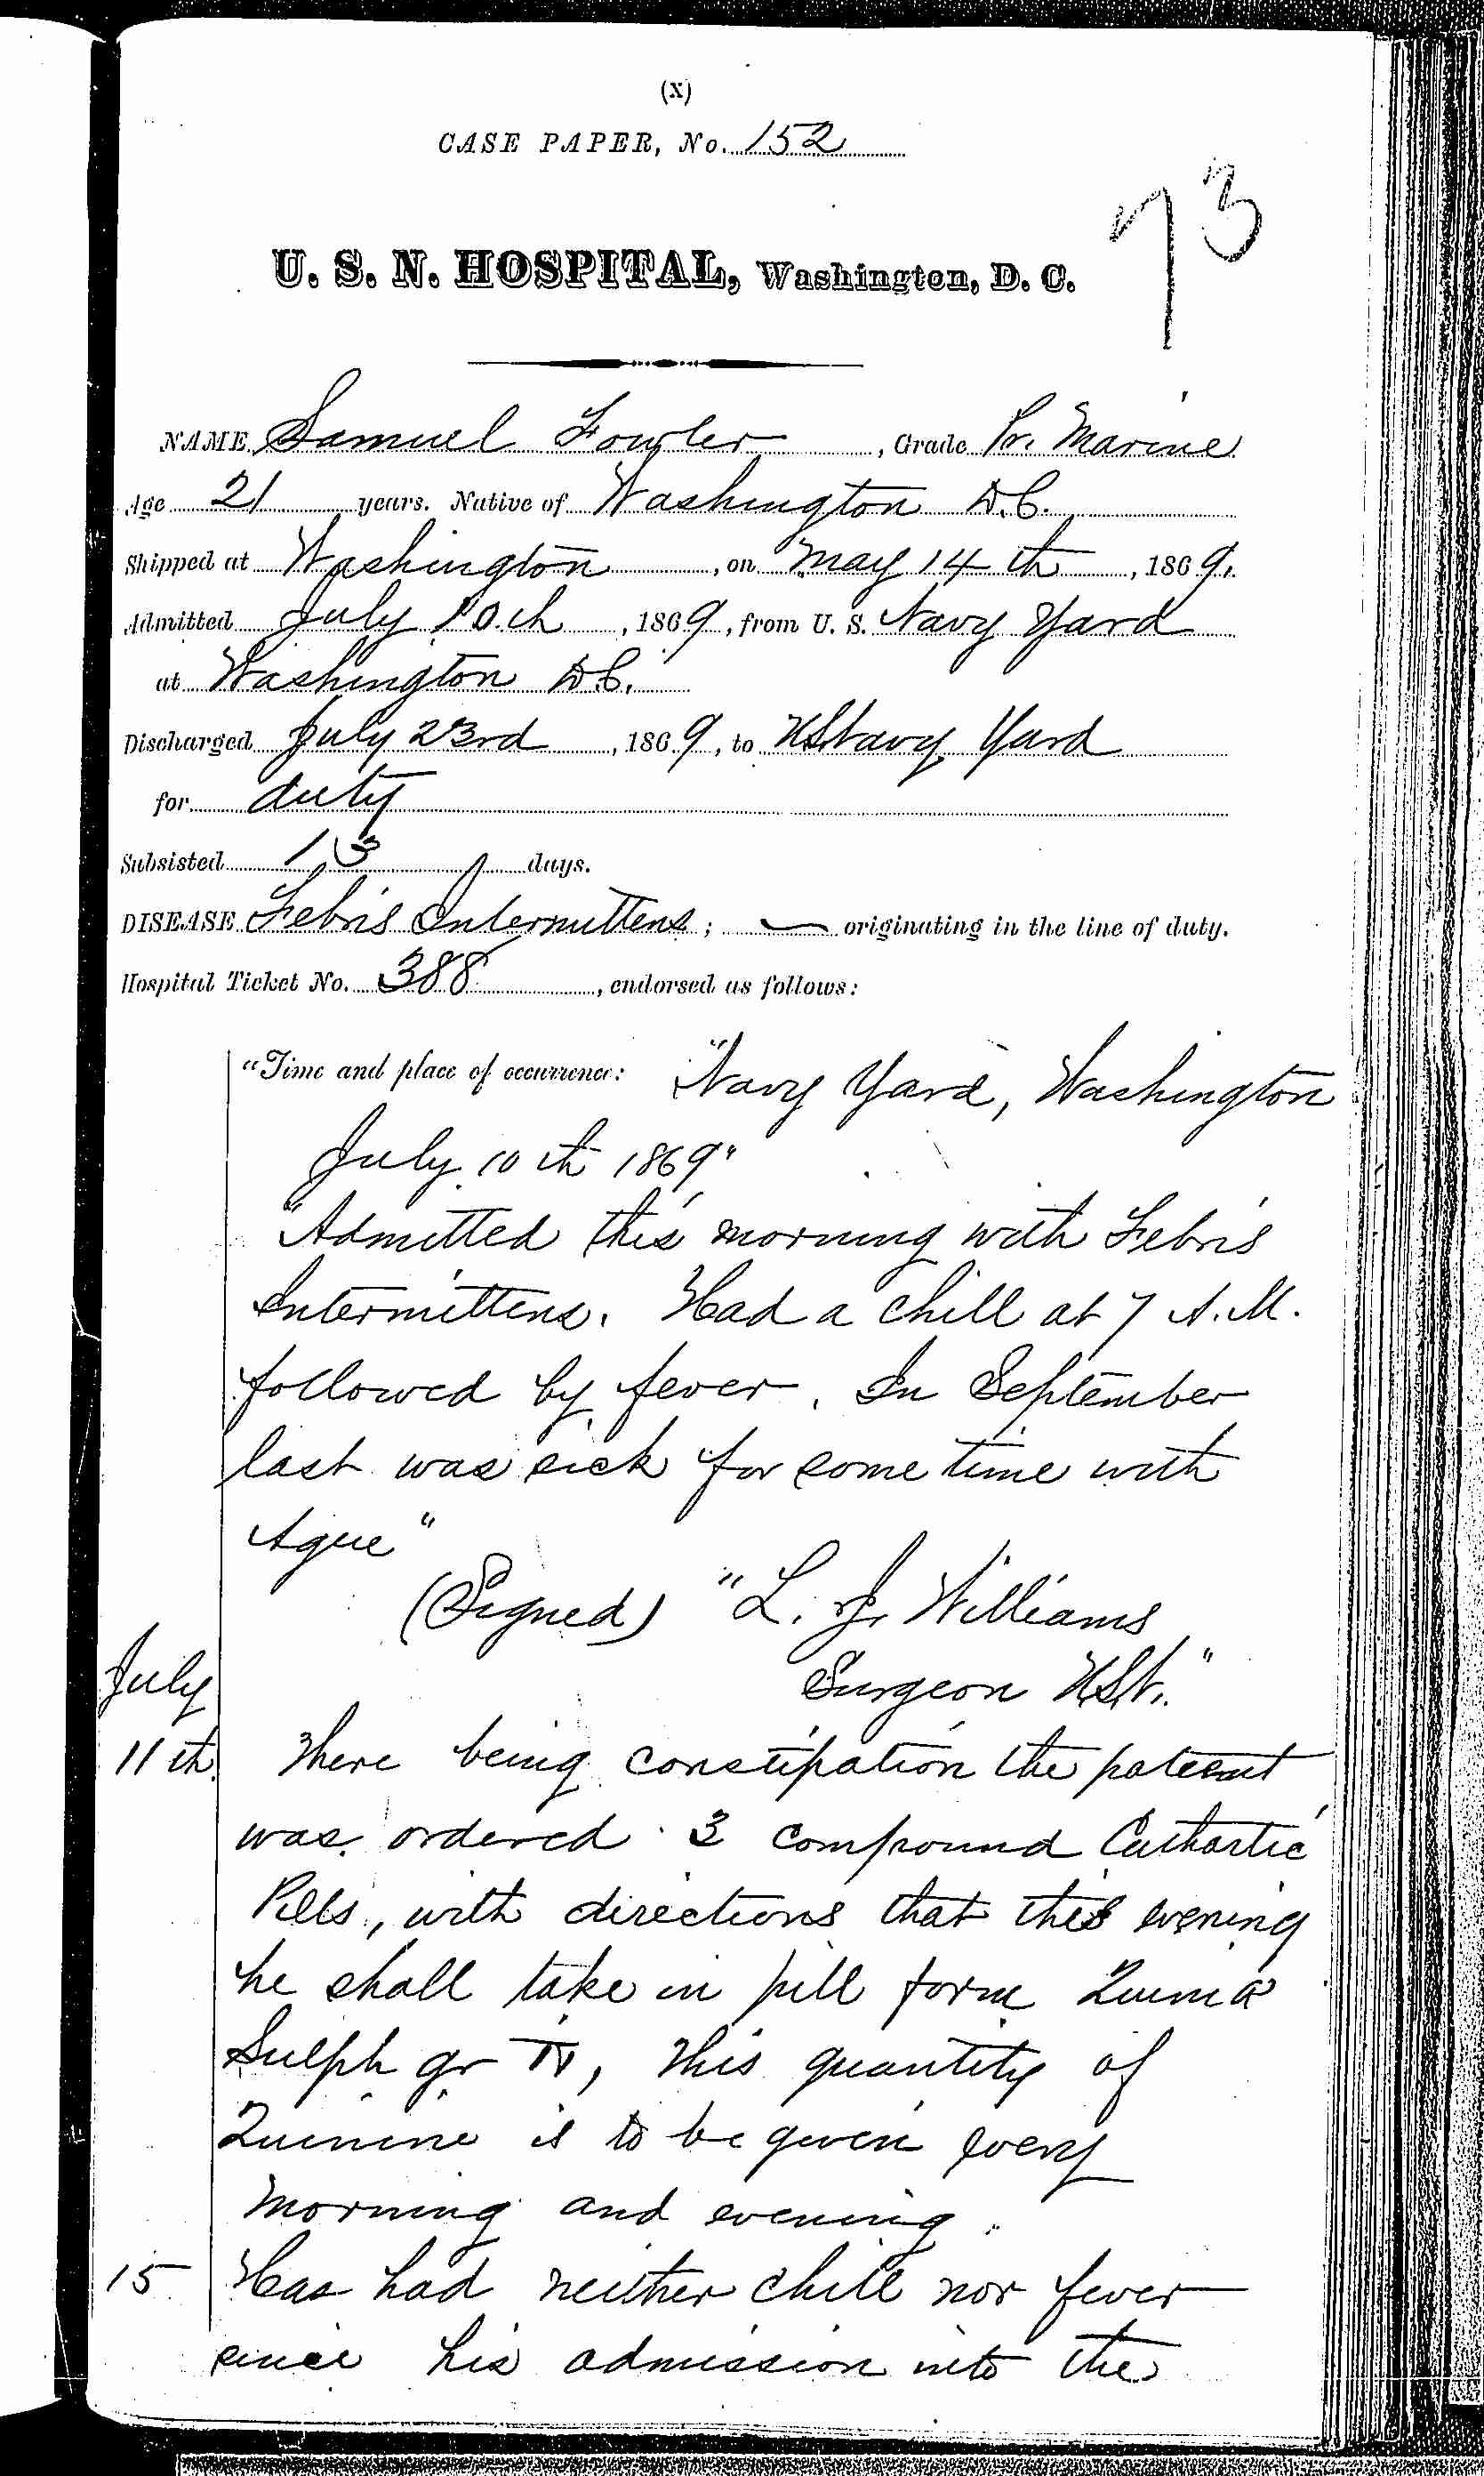 (X)
CASE PAPER, No. 152
73
U. S. N. HOSPITAL, Washington, D. C.
NAME Samuel Fowler, Grade Pr. Marine
Age 21 years. Native of Washington D.C.
Shipped at Washington, on May 14th, 1869.
Admitted July 10th, 1869, from U. S. Navy Yard
at Washington D.C.
Discharged July 23rd, 1869, to U.S. Navy Yard
for duty
Subsisted 13 days.
DISEASE Febris Intermittens; — originating in the line of duty.
Hospital Ticket No. 388, endorsed as follows:
"Time and place of occurrence: "Navy Yard, Washington
July 10th 1869"
"Admitted this morning with Febris
Intermittens. Had a chill at 7 A.M.
followed by fever. In September
last was sick for some time with
Ague"
(Signed) "L. J. Williams
July Surgeon U.S.N."
11th. There being constipation the patient
was ordered 3 compound Cathartic
Pills, with directions that this evening
he shall take in pill form Quinia
Sulph gr IV, This quantity of
Quinine is to be given every
morning and evening.
15 Has had neither chill nor fever
since his admission into the